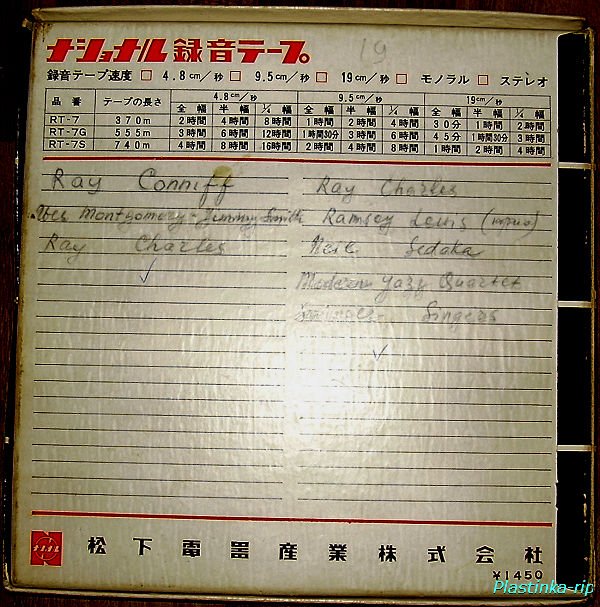 ナショナル録音テープ 19
録音テープ速度 □ 4.8cm/秒 □ 9.5cm/秒 □ 19cm/秒 □ モノラル □ ステレオ
品番 テープの長さ 4.8cm/秒 9.5cm/秒 19cm/秒
全幅 半幅 ¼幅 全幅 半幅 ¼幅 全幅 半幅 ¼幅
RT-7 370m 2時間 4時間 8時間 1時間 2時間 4時間 30分 1時間 2時間
RT-7G 555m 3時間 6時間 12時間 1時間30分 3時間 6時間 45分 1時間30分 3時間
RT-7S 740m 4時間 8時間 16時間 2時間 4時間 8時間 1時間 2時間 4時間
Ray Conniff
Wes Montgomery - Jimmy Smith
Ray Charles
Ray Charles
Ramsey Lewis
Neil Sedaka
Modern Jazz Quartet
Singers
ナショナル
松下電器産業株式会社
¥1450
Plastinka-rip